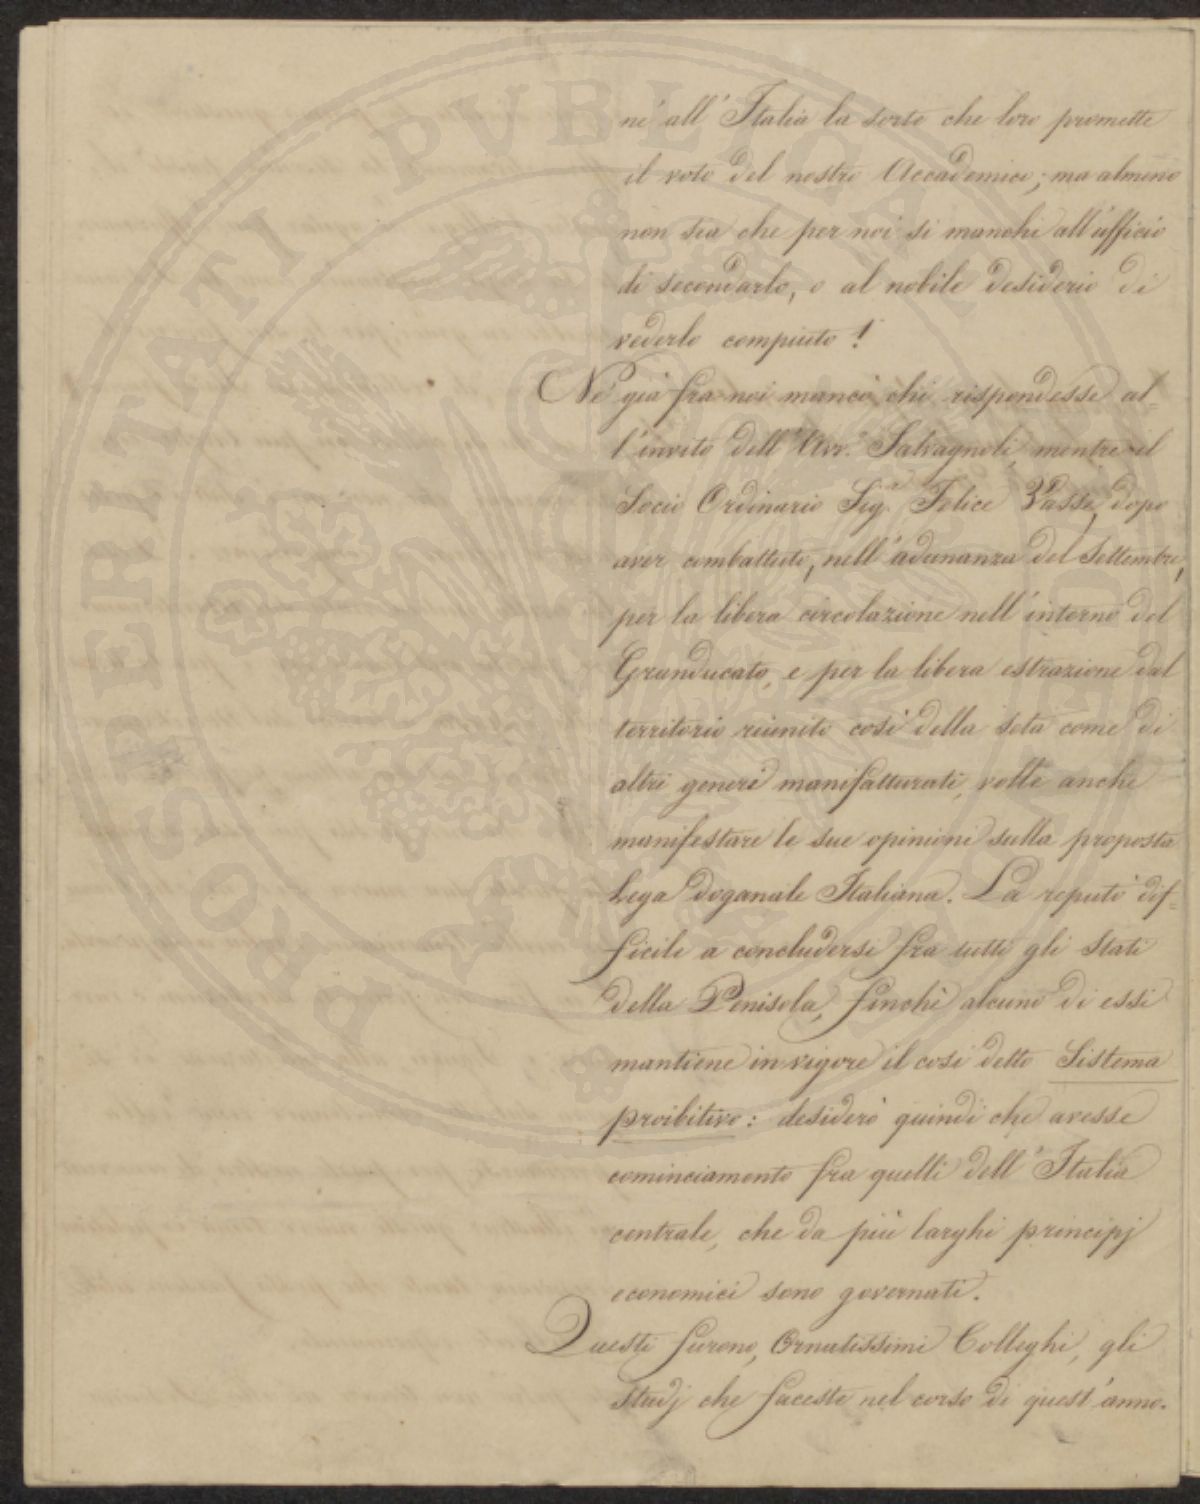 nè all'Italia la sorte che loro promette
il voto del nostro Accademico; ma almeno
non sia che per noi si manchi all'ufficio
di secondarlo, o al nobile desiderio di
vederlo compiuto!
Nè già fra noi mancò chi rispondesse al-
l'invito dell'Avv.º Salvagnoli, mentre il
Socio Ordinario Sig.r Felice Vasse, dopo
aver combattuto, nell'adunanza del Settembre,
per la libera circolazione nell'interno del
Granducato, e per la libera estrazione dal
territorio riunito così della seta come di
altri generi manifatturati, volle anche
manifestare le sue opinioni sulla proposta
Lega doganale Italiana. La reputò dif-
ficile a concludersi fra tutti gli Stati
della Penisola, finchè alcuno di essi
mantiene in vigore il così detto Sistema
proibitivo: desiderò quindi che avesse
cominciamento fra quelli dell'Italia
centrale, che da più larghi principj
economici sono governati.
Questi furono, Ornatissimi Colleghi, gli
Studj che faceste nel corso di quest'anno.
PROSPERITATI PVBLICAE